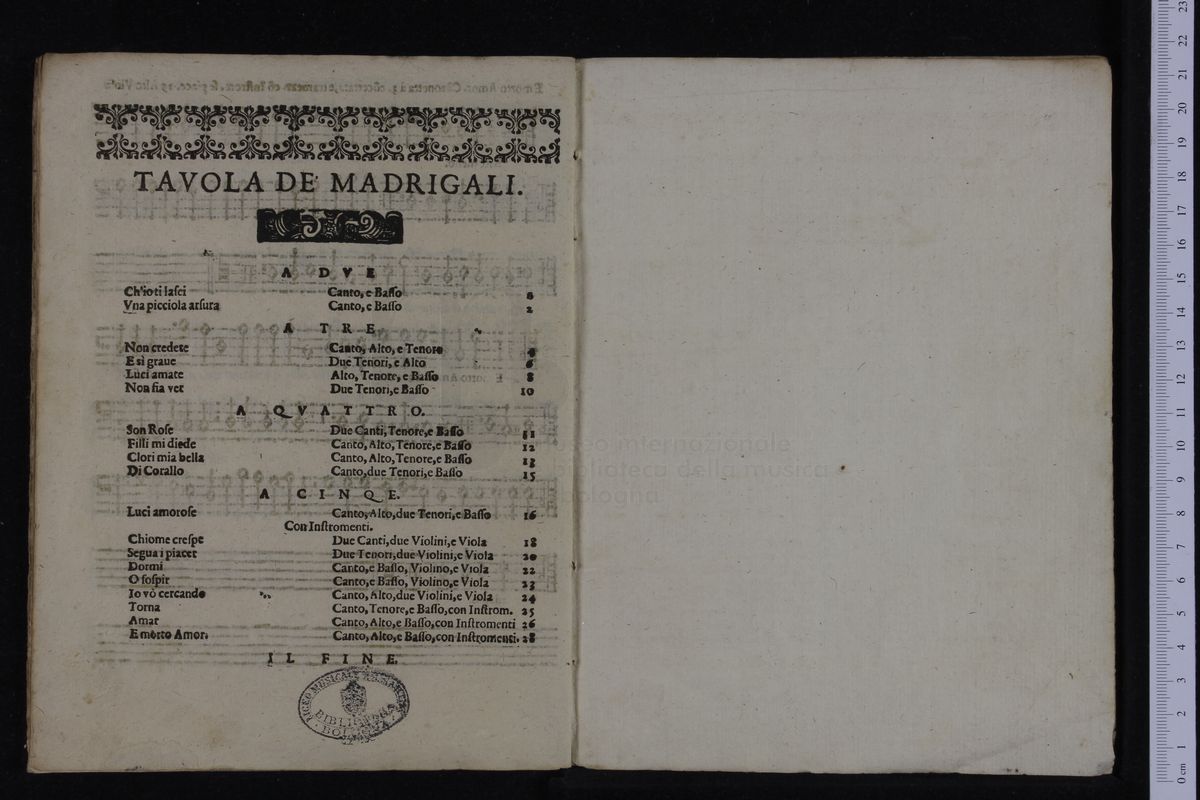 TAVOLA DE' MADRIGALI.
A DVE
Ch'io ti lasci Canto, e Basso
Vna picciola arsura Canto, e Basso 2
A TRE.
Non credete Canto, Alto, e Tenore 4
E sì graue Due Tenori, e Alto 6
Luci amate Alto, Tenore, e Basso 8
Non fia ver Due Tenori, e Basso 10
A QVATTRO.
Son Rose Due Canti, Tenore, e Basso 11
Filli mi diede Canto, Alto, Tenore, e Basso 12
Clori mia bella Canto, Alto, Tenore, e Basso 13
Di Corallo Canto, due Tenori, e Basso 15
A CINQE.
Luci amorose Canto, Alto, due Tenori, e Basso 16
Con Instromenti.
Chiome crespe Due Canti, due Violini, e Viola 18
Segua i piacer Due Tenori, due Violini, e Viola 20
Dormi Canto, e Basso, Violino, e Viola 22
O sospir Canto, e Basso, Violino, e Viola 23
Io vò cercando Canto, Alto, due Violini, e Viola 24
Torna Canto, Tenore, e Basso, con Instrom. 25
Amar Canto, Alto, e Basso, con Instromenti 26
E morto Amor. Canto, Alto, e Basso, con Instromenti. 28
IL FINE.
LICEO MUSICALE
BIBLIOTECA
BOLOGNA
internazionale
biblioteca della musica
bologna
0 cm 1 2 3 4 5 6 7 8 9 10 11 12 13 14 15 16 17 18 19 20 21 22 23